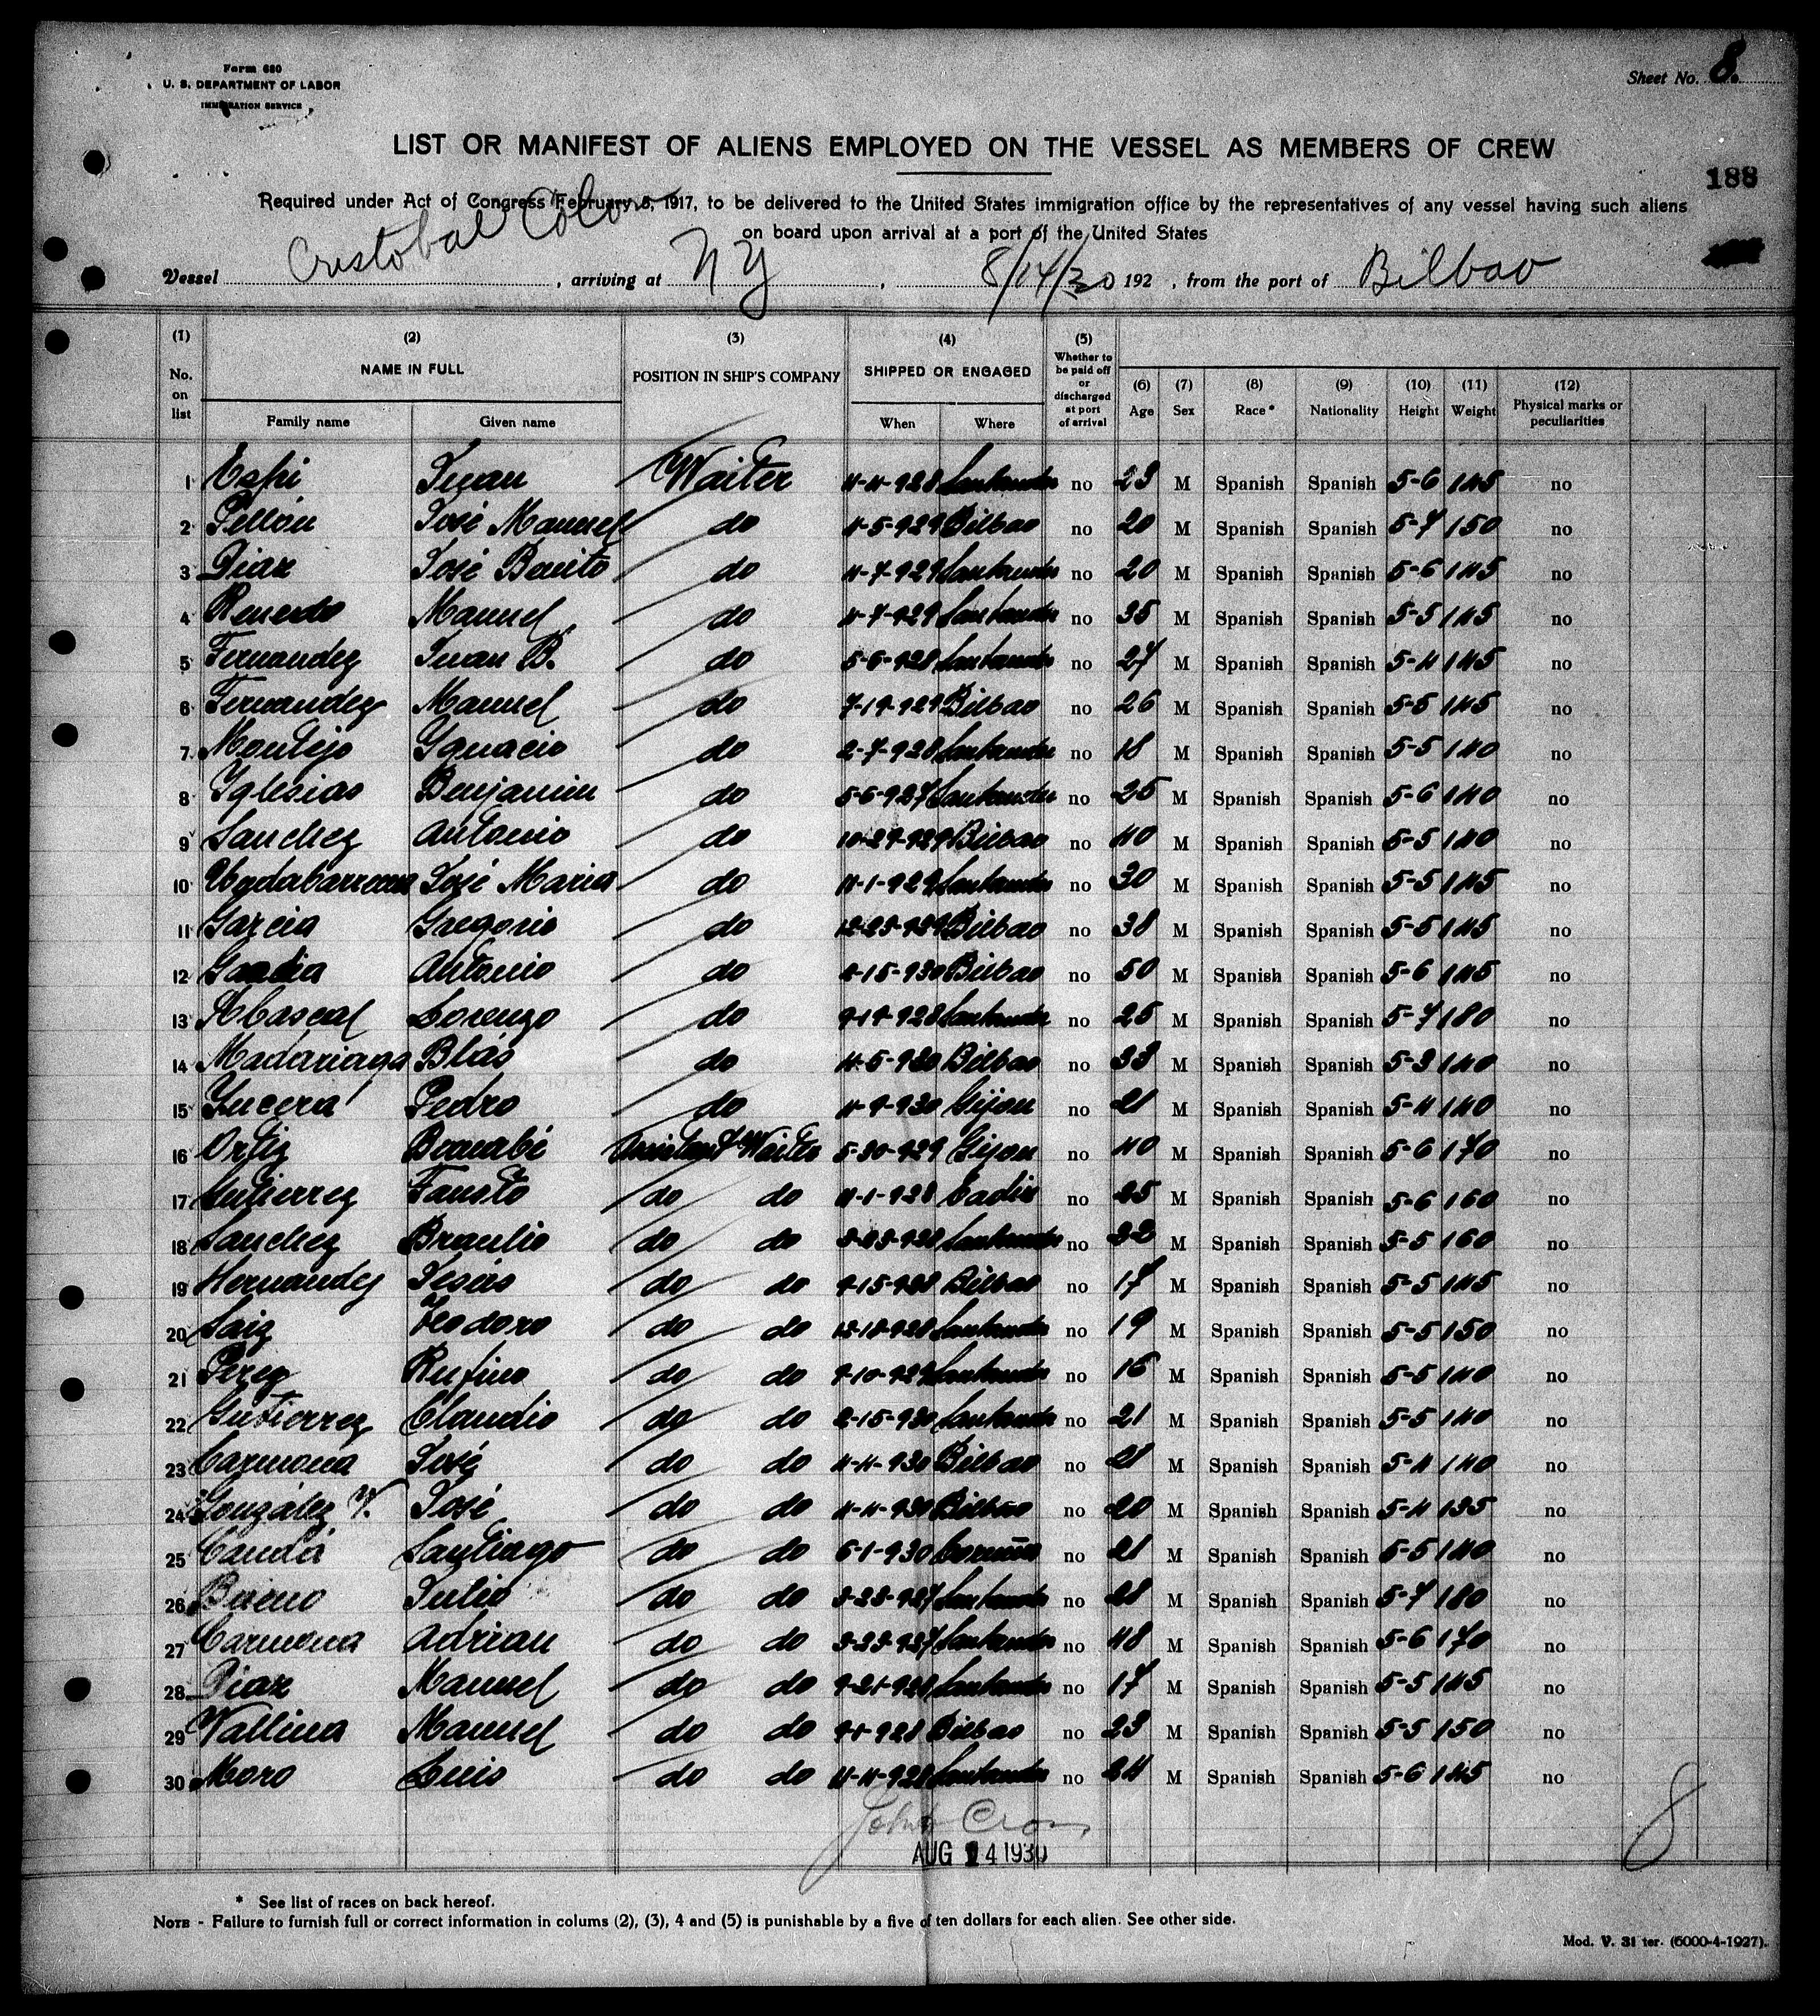 Form 680
U. S. DEPARTMENT OF LABOR
IMMIGRATION SERVICE
Sheet No. 8.
LIST OR MANIFEST OF ALIENS EMPLOYED ON THE VESSEL AS MEMBERS OF CREW
188
Required under Act of Congress February 5, 1917, to be delivered to the United States immigration office by the representatives of any vessel having such aliens
on board upon arrival at a port of the United States
Vessel Cristobal Colon, arriving at NY, 8/14/30 192 , from the port of Bilbao
(1) No. on list (2) NAME IN FULL Family name Given name (3) POSITION IN SHIP'S COMPANY (4) SHIPPED OR ENGAGED When Where (5) Whether to be paid off or discharged at port of arrival (6) Age (7) Sex (8) Race* (9) Nationality (10) Height (11) Weight (12) Physical marks or peculiarities
1 Espi Juan Waiter Santander no 23 M Spanish Spanish 5-6 145 no
2 Pellón José Manuel do 4-5-929 Bilbao no 20 M Spanish Spanish 5-7 150 no
3 Diaz José Benito do 4-7-929 Santander no 20 M Spanish Spanish 5-6 145 no
4 Renedo Manuel do 4-7-929 Santander no 35 M Spanish Spanish 5-5 145 no
5 Fernandez Juan B. do 5-6-928 Santander no 27 M Spanish Spanish 5-4 145 no
6 Fernandez Manuel do 7-19-929 Bilbao no 26 M Spanish Spanish 5-5 145 no
7 Montejo Ygnacio do 2-7-928 Santander no 18 M Spanish Spanish 5-5 140 no
8 Yglesias Benjamin do 5-6-927 Santander no 25 M Spanish Spanish 5-6 140 no
9 Sanchez Antonio do 10-29-929 Bilbao no 40 M Spanish Spanish 5-5 140 no
10 José Maria do 4-1-929 Santander no 30 M Spanish Spanish 5-5 145 no
11 Garcia Gregorio do 12-23-929 Bilbao no 38 M Spanish Spanish 5-5 145 no
12 Antonio do Bilbao no 50 M Spanish Spanish 5-6 145 no
13 Abascal Lorenzo do 9-19-928 Santander no 25 M Spanish Spanish 5-7 180 no
14 Madariaga Blas do 4-5-930 Bilbao no 33 M Spanish Spanish 5-3 140 no
15 Yucera Pedro do 4-9-930 Gijon no 21 M Spanish Spanish 5-4 140 no
16 Ortiz Bernabé Assistant Waiter 5-30-929 Gijon no 40 M Spanish Spanish 5-6 170 no
17 Gutierrez Fausto do do 4-1-928 Cadiz no 25 M Spanish Spanish 5-6 160 no
18 Sanchez Braulio do do Santander no M Spanish Spanish 5-5 160 no
19 Hernandez Jesús do do 9-15-928 Bilbao no 17 M Spanish Spanish 5-5 145 no
20 Saiz Teodoro do do 12-18-928 Santander no 19 M Spanish Spanish 5-5 150 no
21 Perez Rufino do do 9-10-929 Santander no 16 M Spanish Spanish 5-5 140 no
22 Gutierrez Claudio do do 2-15-930 Santander no 21 M Spanish Spanish 5-5 140 no
23 Carmona José do do 4-4-930 Bilbao no 21 M Spanish Spanish 5-4 140 no
24 González Y. José do do 4-4-930 Bilbao no 20 M Spanish Spanish 5-4 135 no
25 Santiago do do 6-1-930 Coruña no 21 M Spanish Spanish 5-5 140 no
26 Bueno Julio do do 3-23-927 Santander no 28 M Spanish Spanish 5-7 180 no
27 Carmona Adrian do do 3-23-927 Santander no 48 M Spanish Spanish 5-6 170 no
28 Diaz Manuel do do 9-21-928 Santander no 17 M Spanish Spanish 5-5 145 no
29 Vallina Manuel do do 9-1-928 Bilbao no 23 M Spanish Spanish 5-5 150 no
30 Moro Luis do do 4-4-928 Santander no 24 M Spanish Spanish 5-6 145 no
John Cron
AUG 14 1930
8
* See list of races on back hereof.
NOTE - Failure to furnish full or correct information in colums (2), (3), 4 and (5) is punishable by a five of ten dollars for each alien. See other side.
Mod. V. 31 ter. (5000-4-1927).